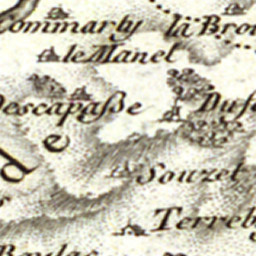 Commarly
la Brou
le Manel
Descapaſse
Duſ
de
Souzet
Terreb
Boulac